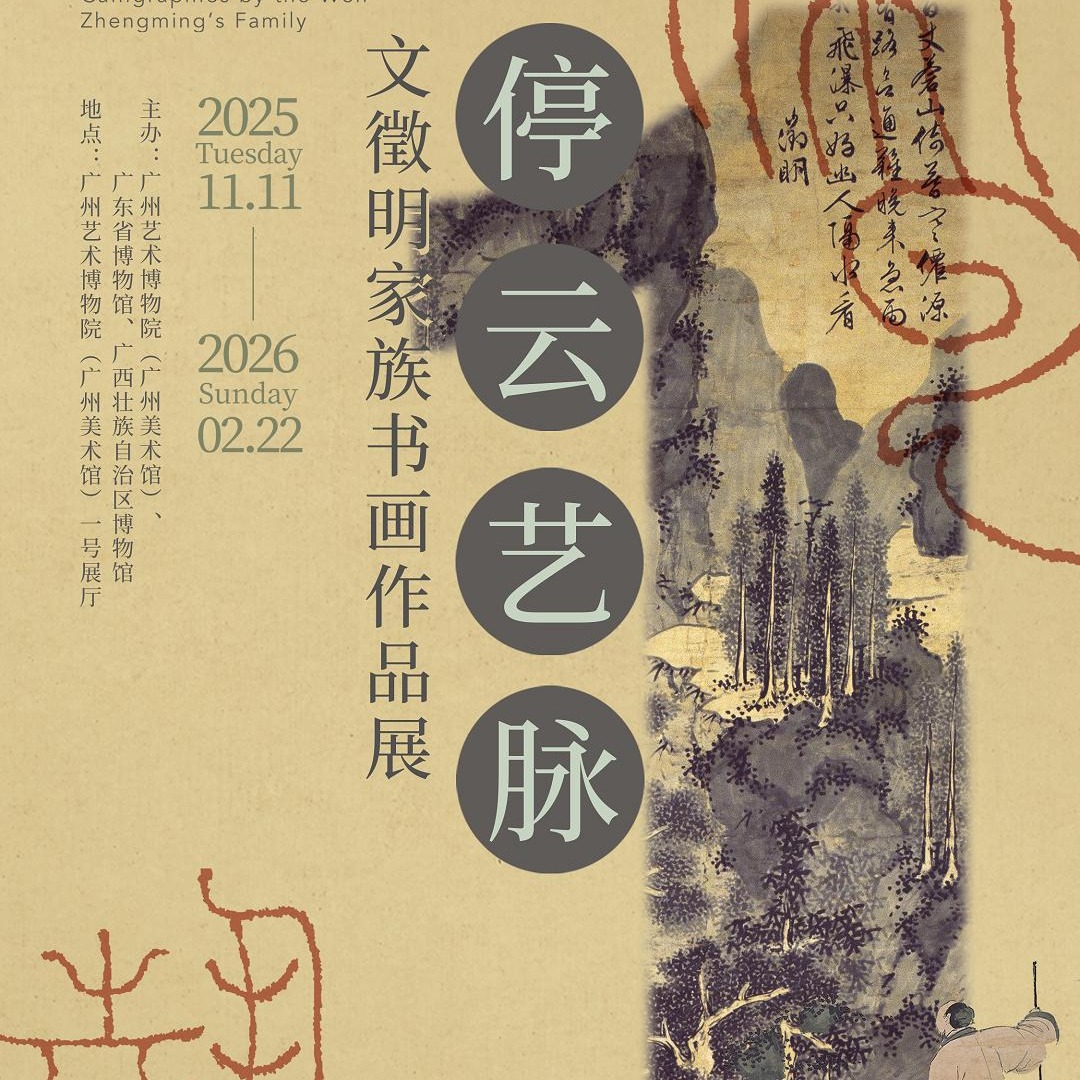 Zhengming's Family
停云艺脉
文徵明家族书画作品展
2025
Tuesday
11.11
2026
Sunday
02.22
主办：广州艺术博物院（广州美术馆）、
广东省博物馆、广西壮族自治区博物馆
地点：广州艺术博物院（广州美术馆）一号展厅
丈苍山倚暮寒僊源
路不通难晚来急雨
飞瀑只好幽人隔水看
徵明